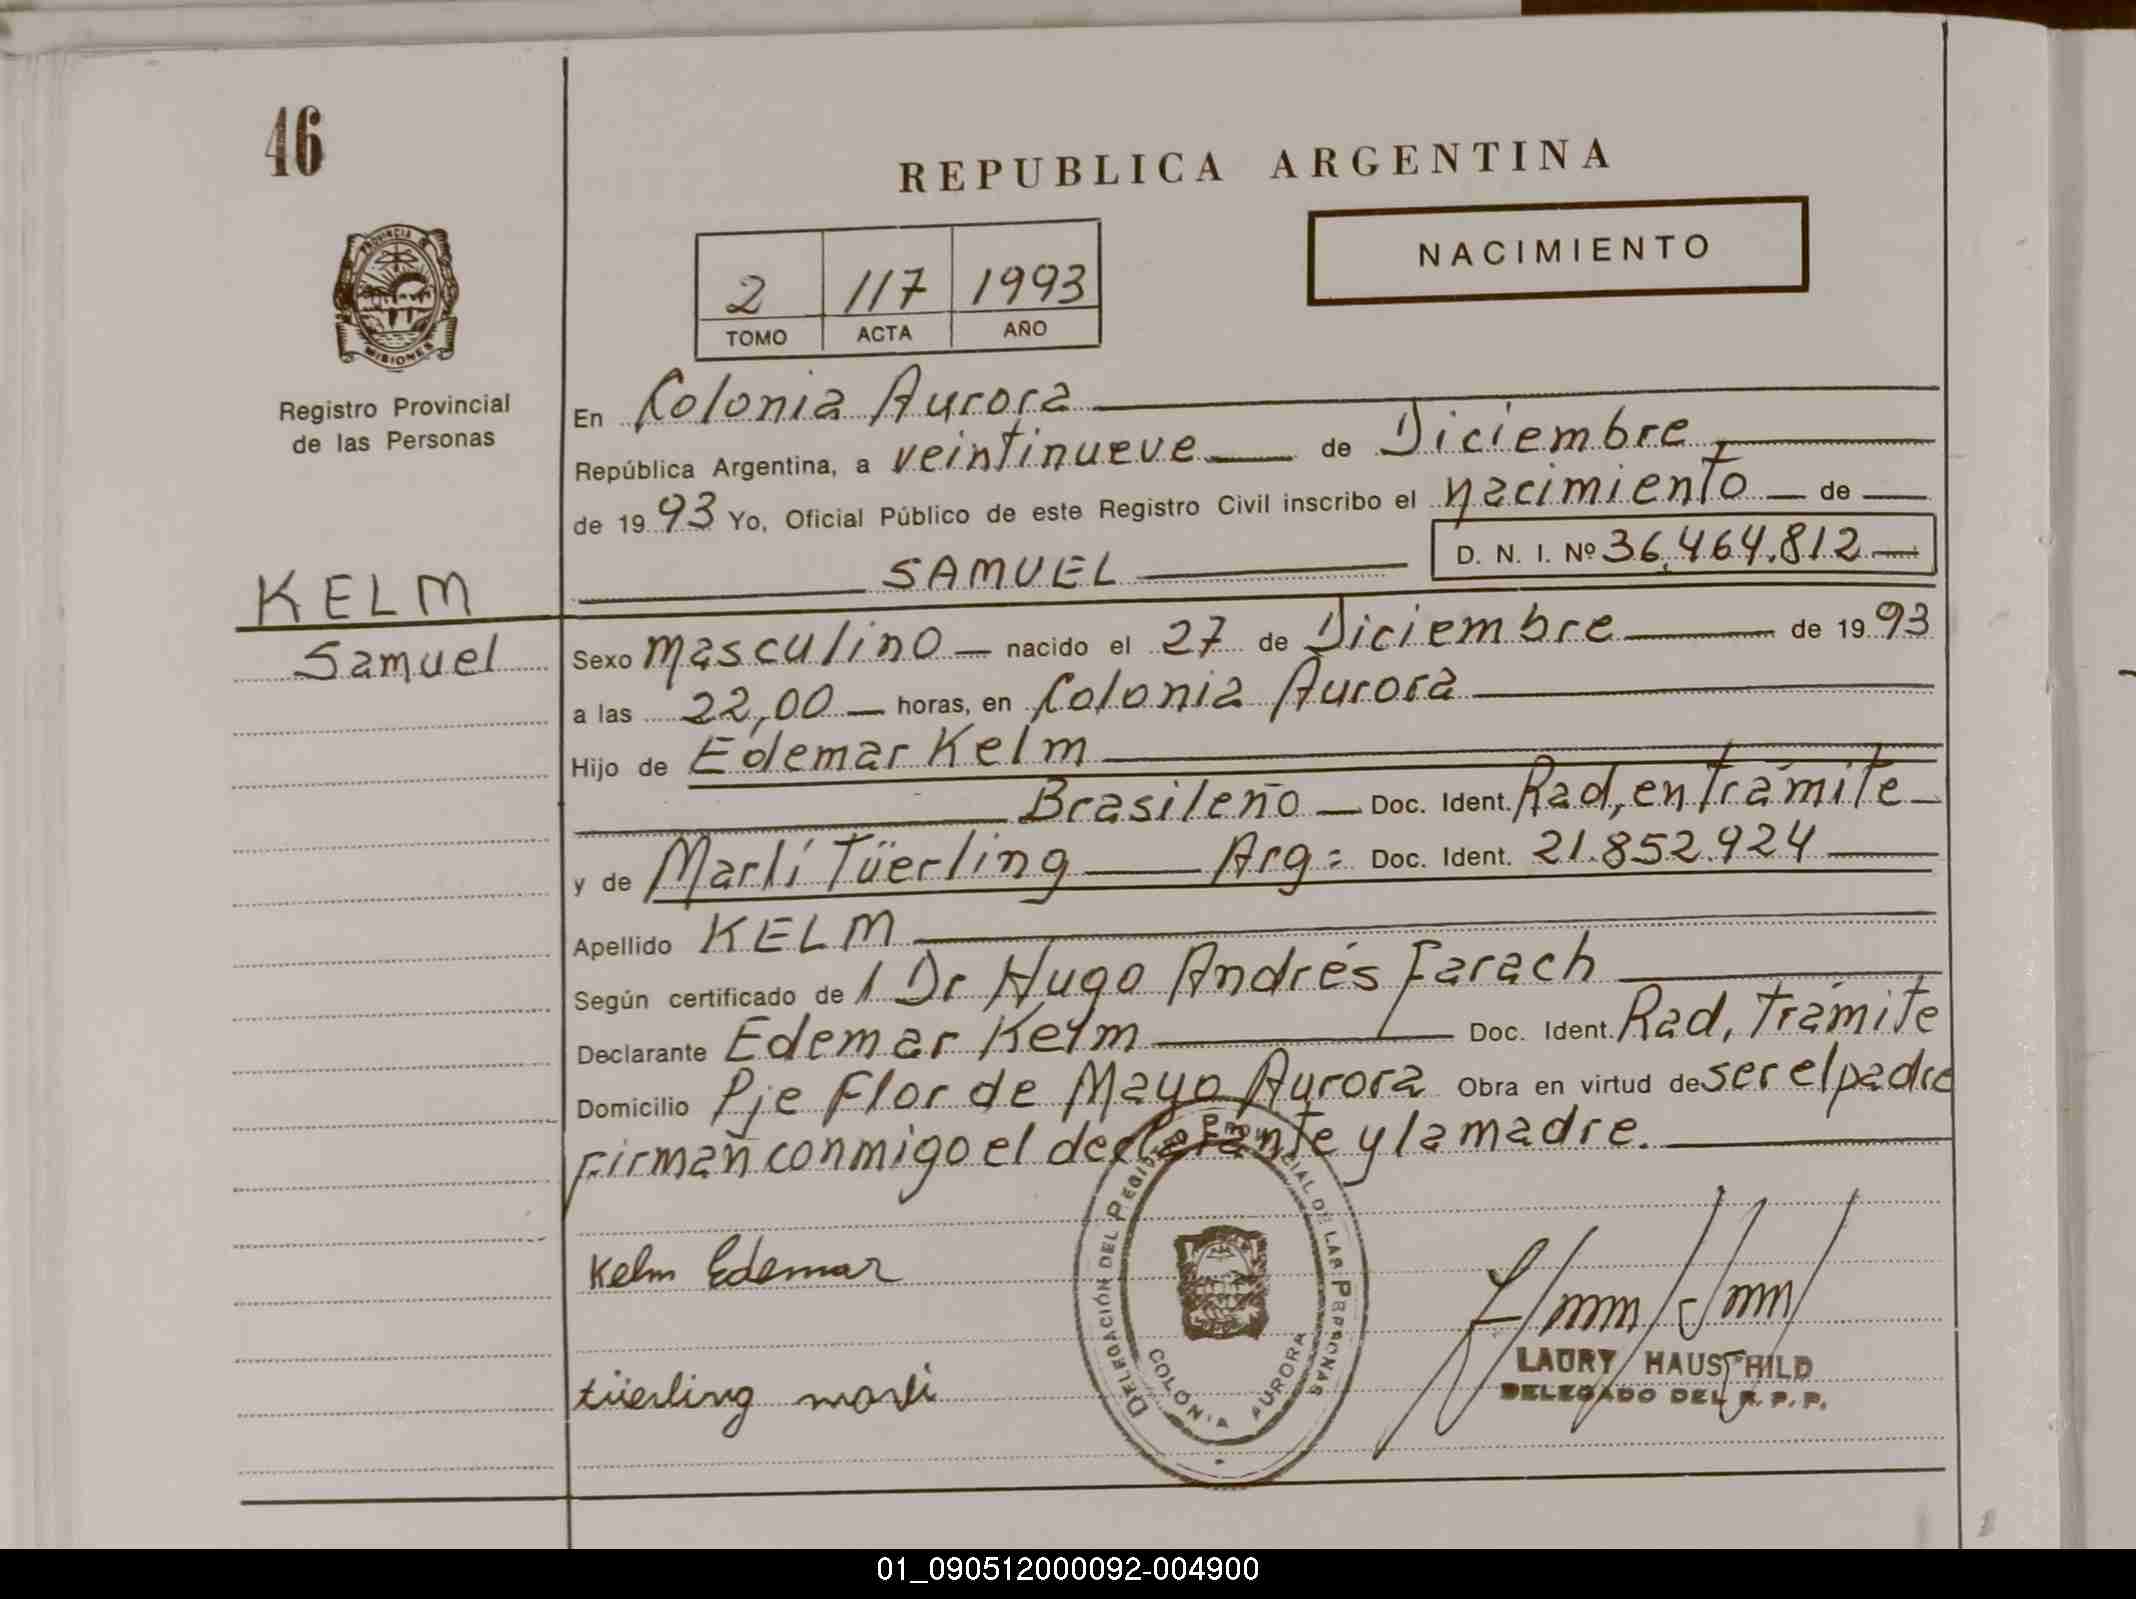 46
REPUBLICA ARGENTINA
NACIMIENTO
2 117 1993
TOMO ACTA AÑO
PROVINCIA DE
MISIONES
Registro Provincial
de las Personas
En Colonia Aurora
República Argentina, a veintinueve de Diciembre,
de 1993 Yo, Oficial Público de este Registro Civil inscribo el nacimiento de
SAMUEL D. N. I. Nº 36.464.812
KELM
Samuel
Sexo masculino nacido el 27 de Diciembre de 1993
a las 22,00 horas, en Colonia Aurora
Hijo de Edemar Kelm
Brasileño Doc. Ident. Rad, en trámite
y de Marlí Tüerling Arg= Doc. Ident. 21.852.924
Apellido KELM
Según certificado de l Dr Hugo Andrés Farach
Declarante Edemar Kelm Doc. Ident. Rad, trámite
Domicilio Pje Flor de Mayo Aurora Obra en virtud de ser el padre
Firman conmigo el declarante y la madre.
DELEGACIÓN DEL REGISTRO PROVINCIAL DE LAS PERSONAS
COLONIA AURORA
Kelm Edemar
tüerling marli
LAURY HAUSCHILD
DELEGADO DEL R. P. P.
01_090512000092-004900